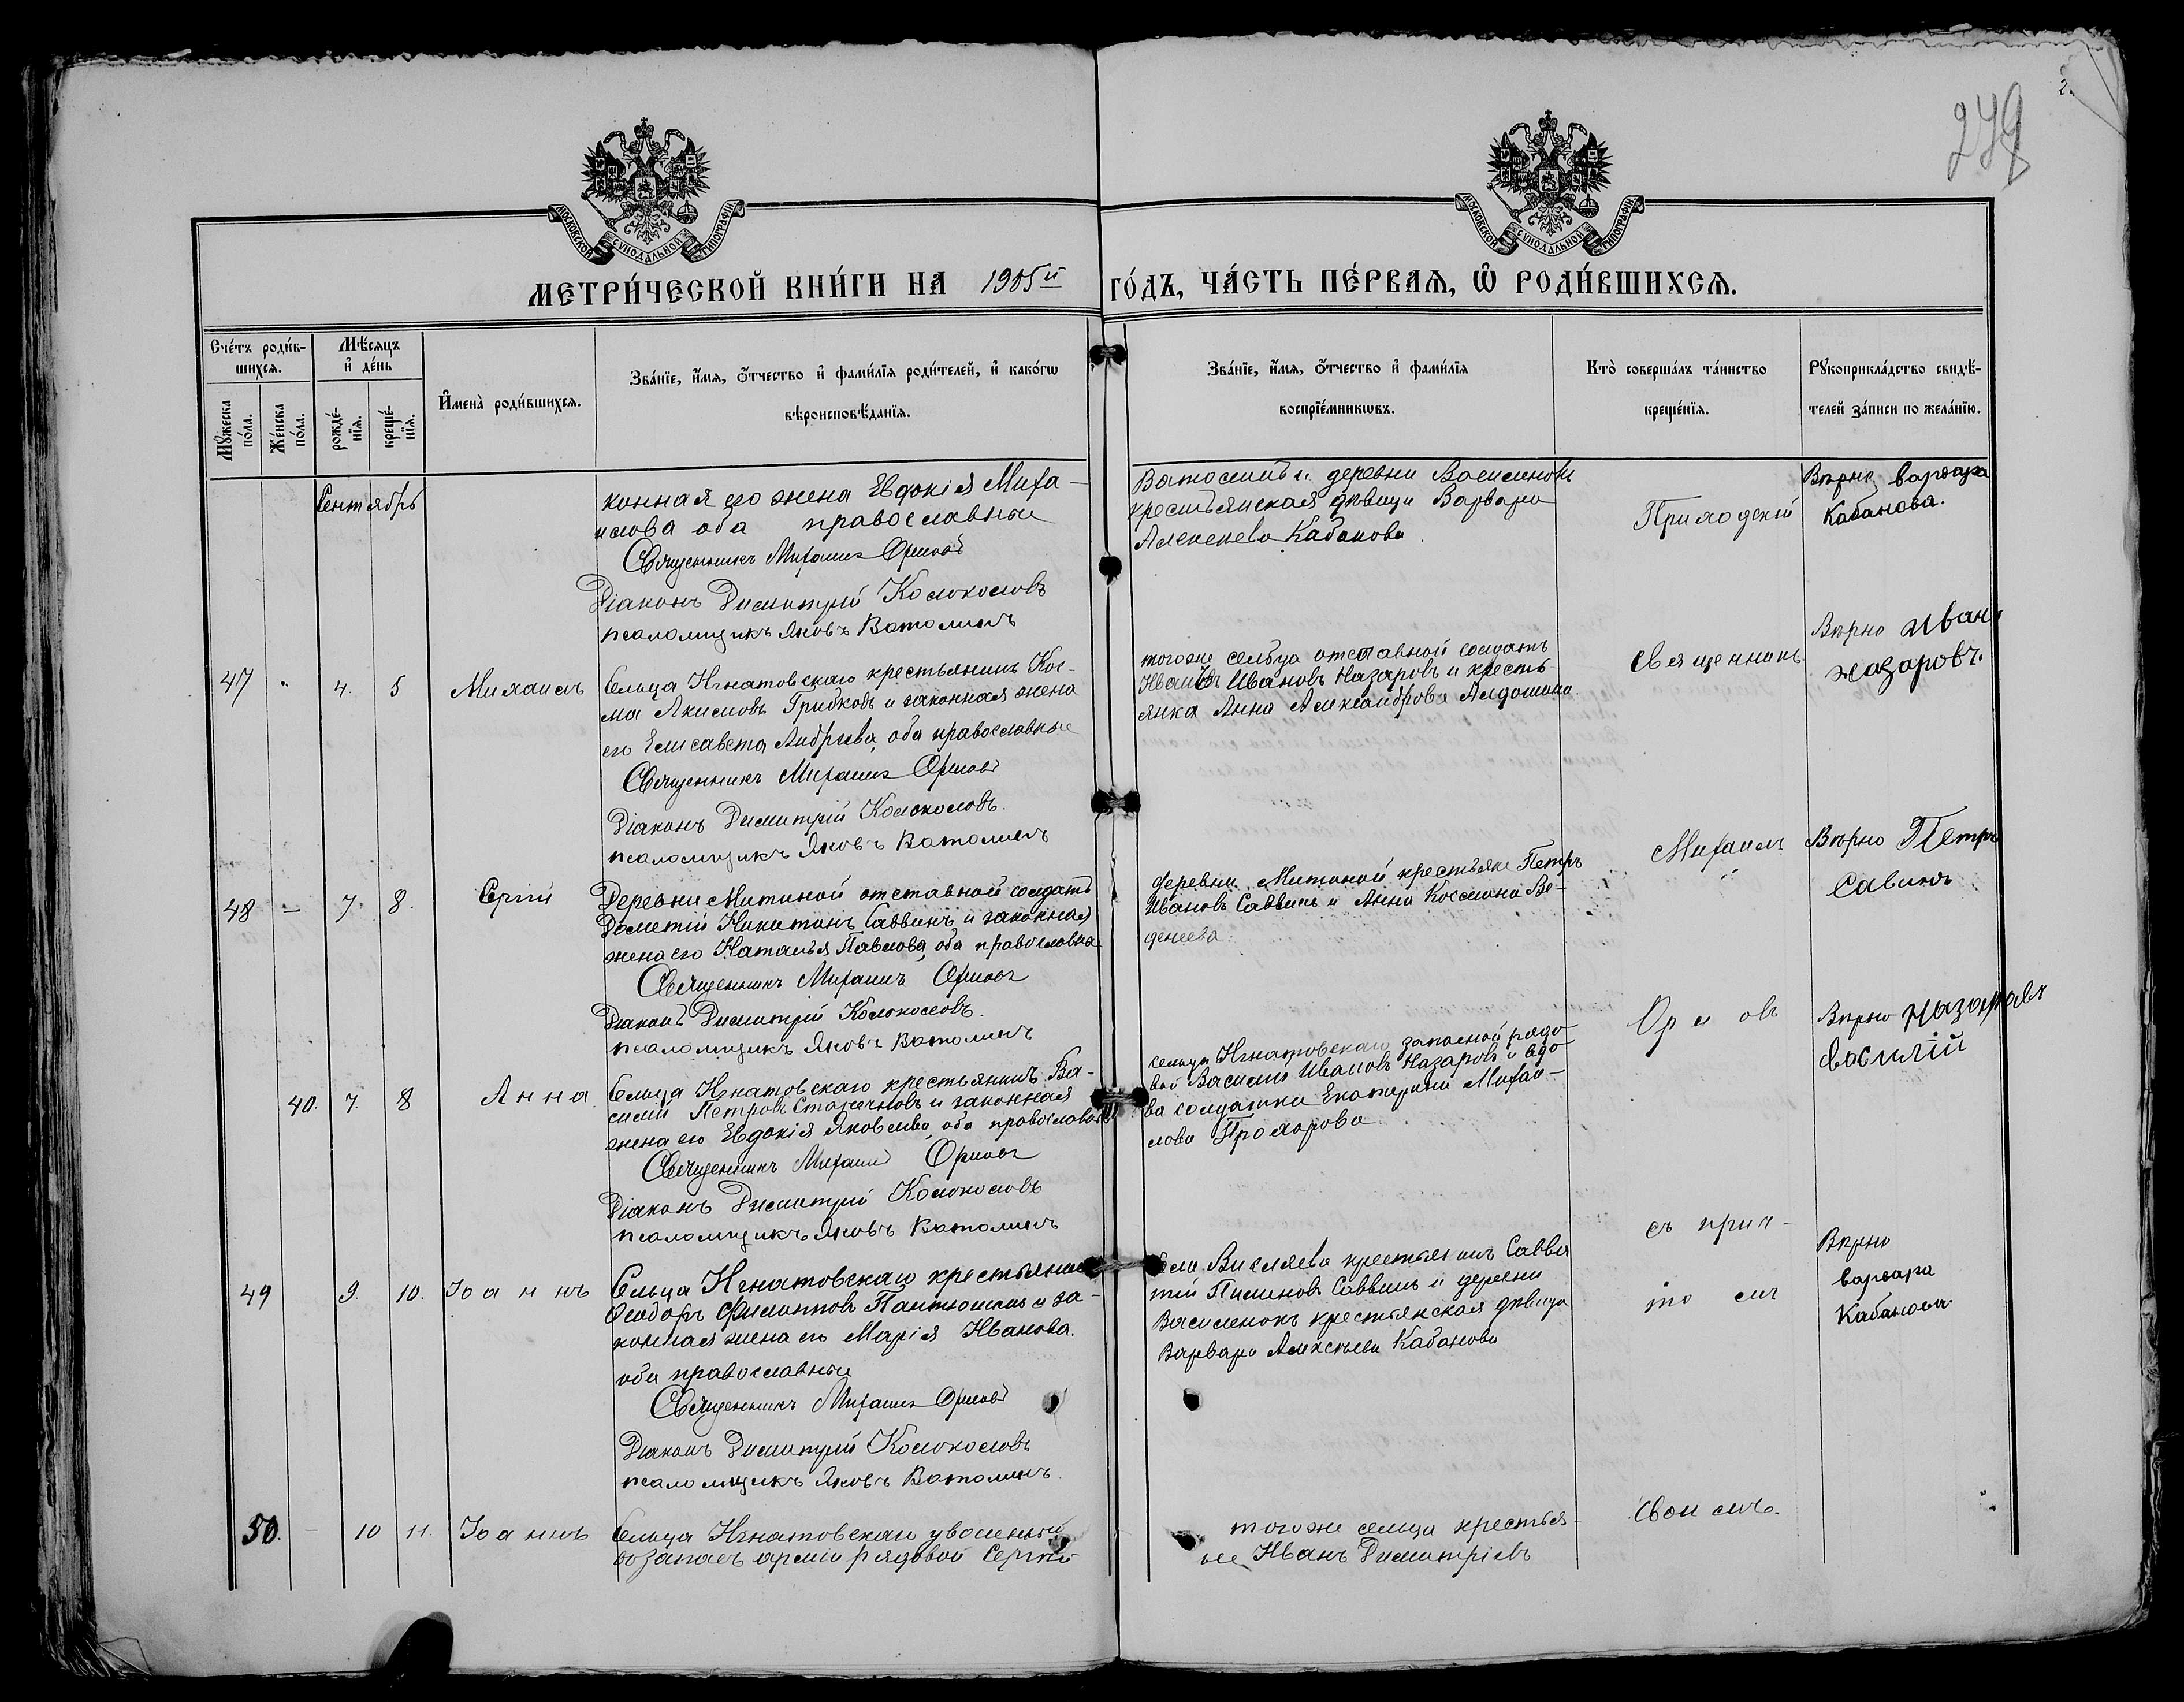 279
МОСКОВСКОЙ СѴНОДАЛЬНОЙ ТИПОГРАФІИ
МОСКОВСКОЙ СѴНОДАЛЬНОЙ ТИПОГРАФІИ
МЕТРИ́ЧЕСКОЙ КНИ́ГИ НА 1905й ГО́ДЪ, ЧА́СТЬ ПЕ́РВАѦ, Ѡ҆ РОДИ́ВШИХСѦ.
Сче́тъ роди́в-
шихсѧ.
Мꙋ́жеска по́ла.
Же́нска по́ла.
Мѣ́сѧцъ и҆ де́нь
рожде́-нїѧ.
креще́-нїѧ.
И҆мена̀ роди́вшихсѧ.
Зва́нїе, и҆́мѧ, о҆́тчество и҆ фами́лїѧ роди́телей, и҆ како́гѡ
вѣроисповѣ́данїѧ.
Зва́нїе, и҆́мѧ, о҆́тчество и҆ фами́лїѧ
воспрїе́мникѡвъ.
Кто̀ соверша́лъ та́инство
креще́нїѧ.
Рꙋкоприкла́дство свидѣ́-
телей за́писи по жела́нїю.
Сентябрь
конная его жена Евдокія Миха-
илова оба православные
Священникъ Михаилъ Орловъ
Діаконъ Димитрій Колоколовъ
псаломщикъ Яковъ Ватолинъ
деревни Василенокъ
крестьянская дѣвица Варвара
Алексѣева Кабанова
Приходскій
Вѣрно варвара
Кабанова.
47 " 4. 5 Михаилъ
Сельца Игнатовскаго крестьянинъ Кос-
ма Акимовъ Грибковъ и законная жена
его Елисавета Андреева, оба православные
Священникъ Михаилъ Орловъ
Діаконъ Димитрій Колоколовъ.
псаломщикъ Яковъ Ватолинъ
тогоже сельца отставной солдатъ
Иванъ Ивановъ Назаровъ и кресть-
янка Анна Александрова Алдошина.
Священникъ
Вѣрно Иванъ
назаровъ.
48 — 7. 8. Сергій
Деревни Митиной отставной солдатъ
Дометій Никитинъ Саввинъ и законная
жена его Наталья Павлова, оба православна
Священникъ Михаилъ Орловъ
Діаконъ Димитрій Колоколовъ.
псаломщикъ Яковъ Ватолинъ
деревни Митиной крестьяне Петръ
Ивановъ Саввинъ и Анна Косьмина Ве-
денеева.
Михаилъ
Вѣрно Петръ
Савинъ
40. 7. 8 Анна
Сельца Игнатовскаго крестьянинъ Ва-
силій Петровъ и законная
жена его Евдокія Яковлева, оба православн
Священникъ Михаилъ Орловъ
Діаконъ Димитрій Колоколовъ
псаломщикъ Яковъ Ватолинъ
сельца Игнатовскаго запасной рядо-
вой Василій Ивановъ Назаровъ и вдо-
ва солдатка Екатерина Михай-
лова Прохорова
Орловъ
Вѣрно назаравъ
василій
49 9. 10. Іоаннъ
Сельца Игнатовскаго крестьянинъ
Ѳеодоръ Филипповъ Пантюшинъ и за-
конная жена его Марія Иванова.
оба православные
Священникъ Михаилъ Орловъ
Діаконъ Димитрій Колоколовъ
псаломщикъ Яковъ Ватолинъ.
села Висляева крестьянинъ Савва
тій Пименовъ Саввинъ и деревни
Василенокъ крестьянская дѣвица
Варвара Алексѣева Кабанова
съ прич-
томъ
Вѣрно
варвара
Кабанова
50. — 10 11. Іоаннъ
Сельца Игнатовскаго уволенный
въ запасъ арміи рядовой Сергій
тогоже сельца крестья-
не Иванъ Димитріевъ
своимъ.